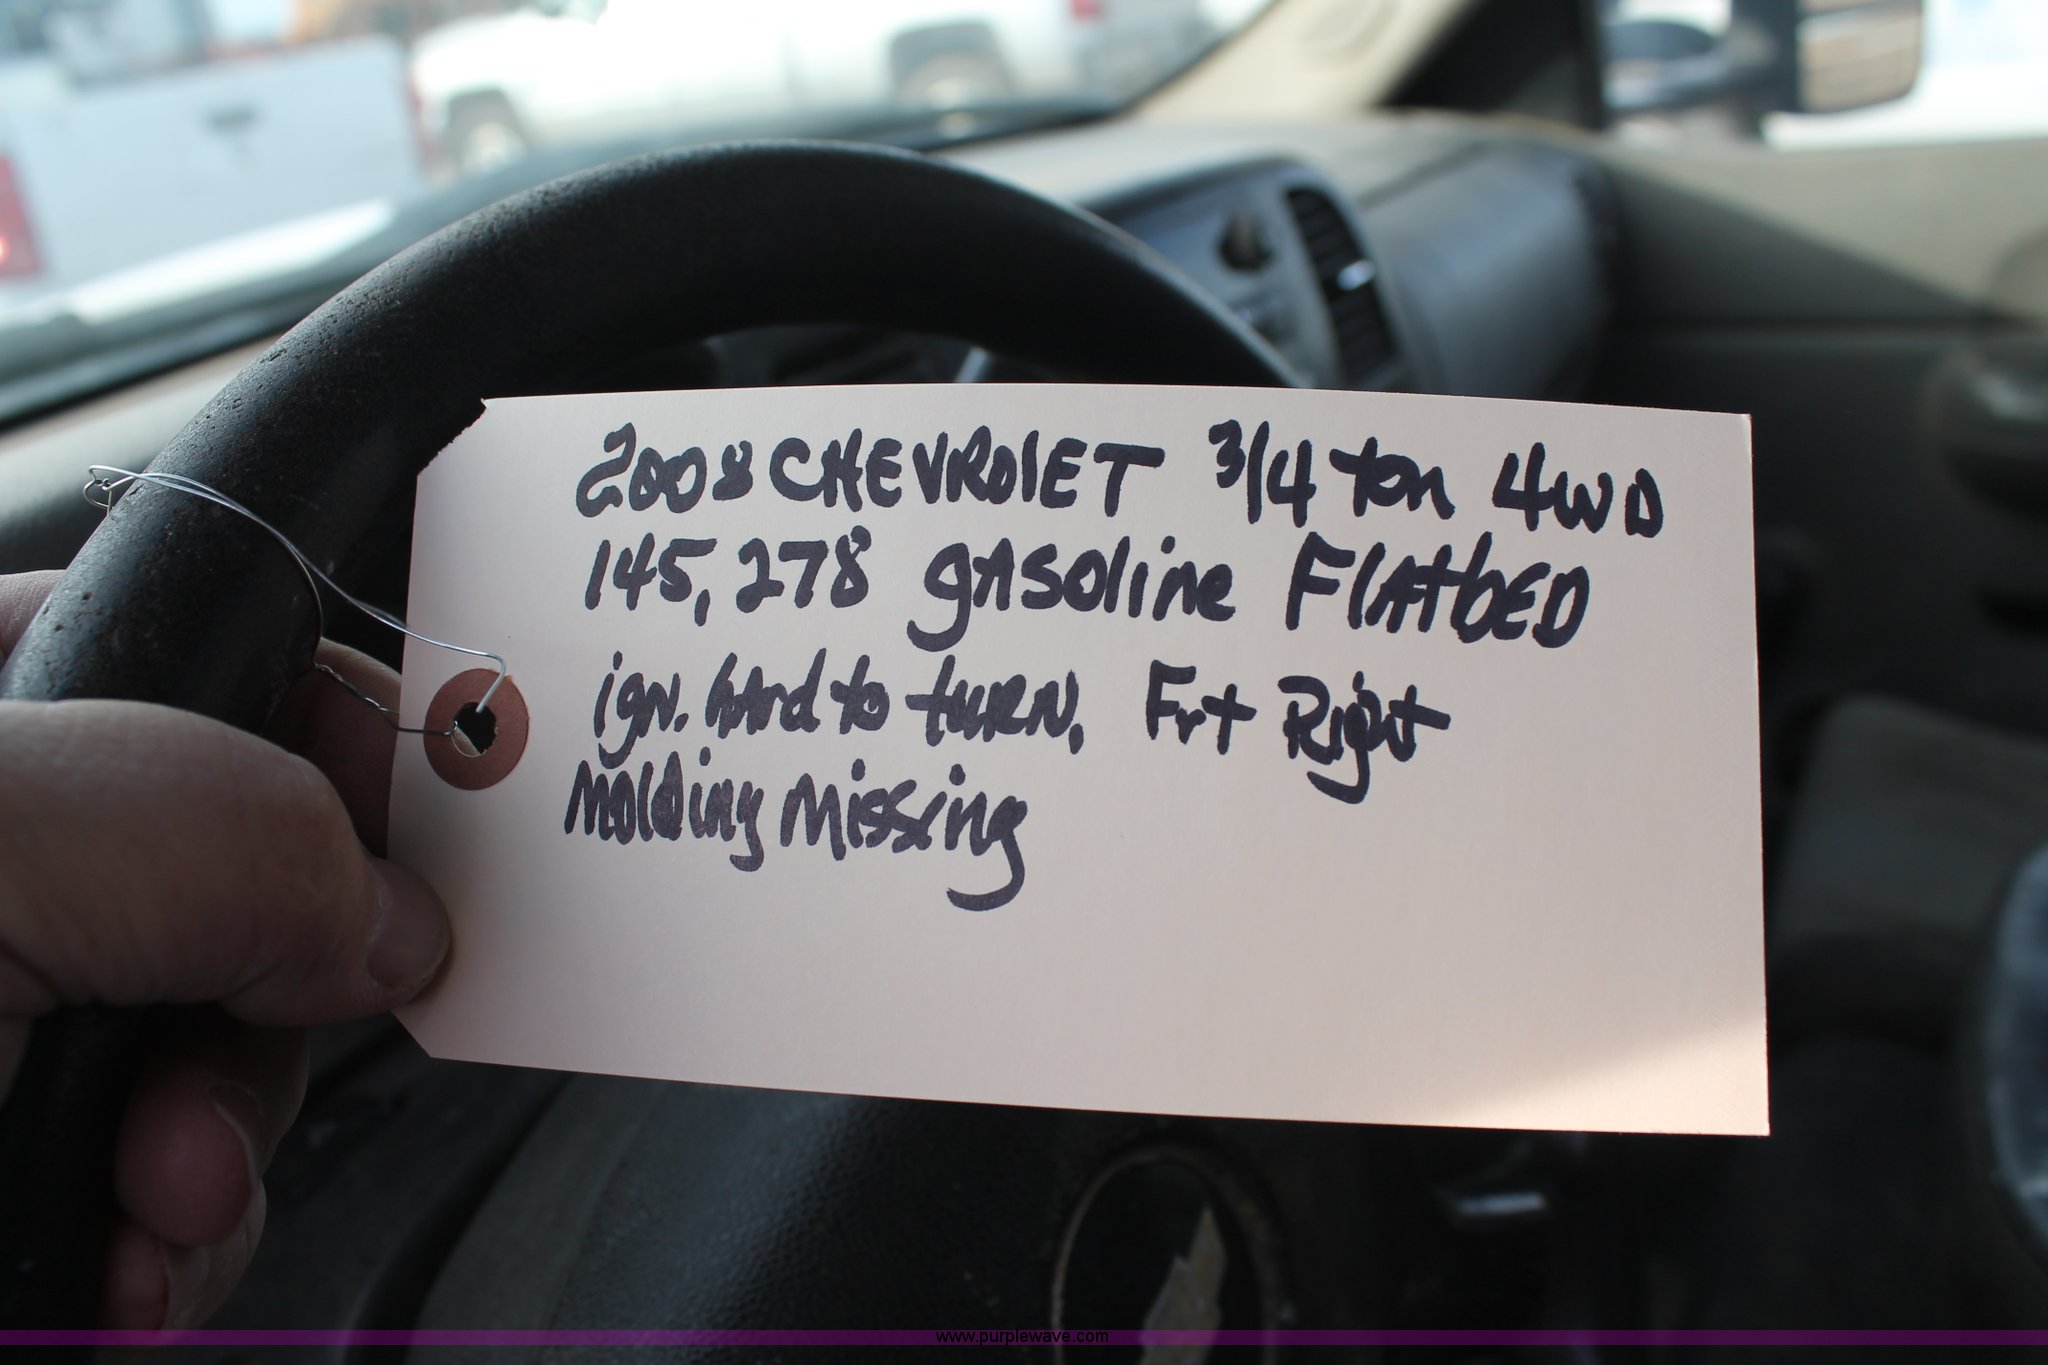 2008 CHEVROLET 3/4 ton 4WD
145,278 gasoline FlAtbED
ign. hard to turn, Frt Right
Molding Missing
www.purplewave.com